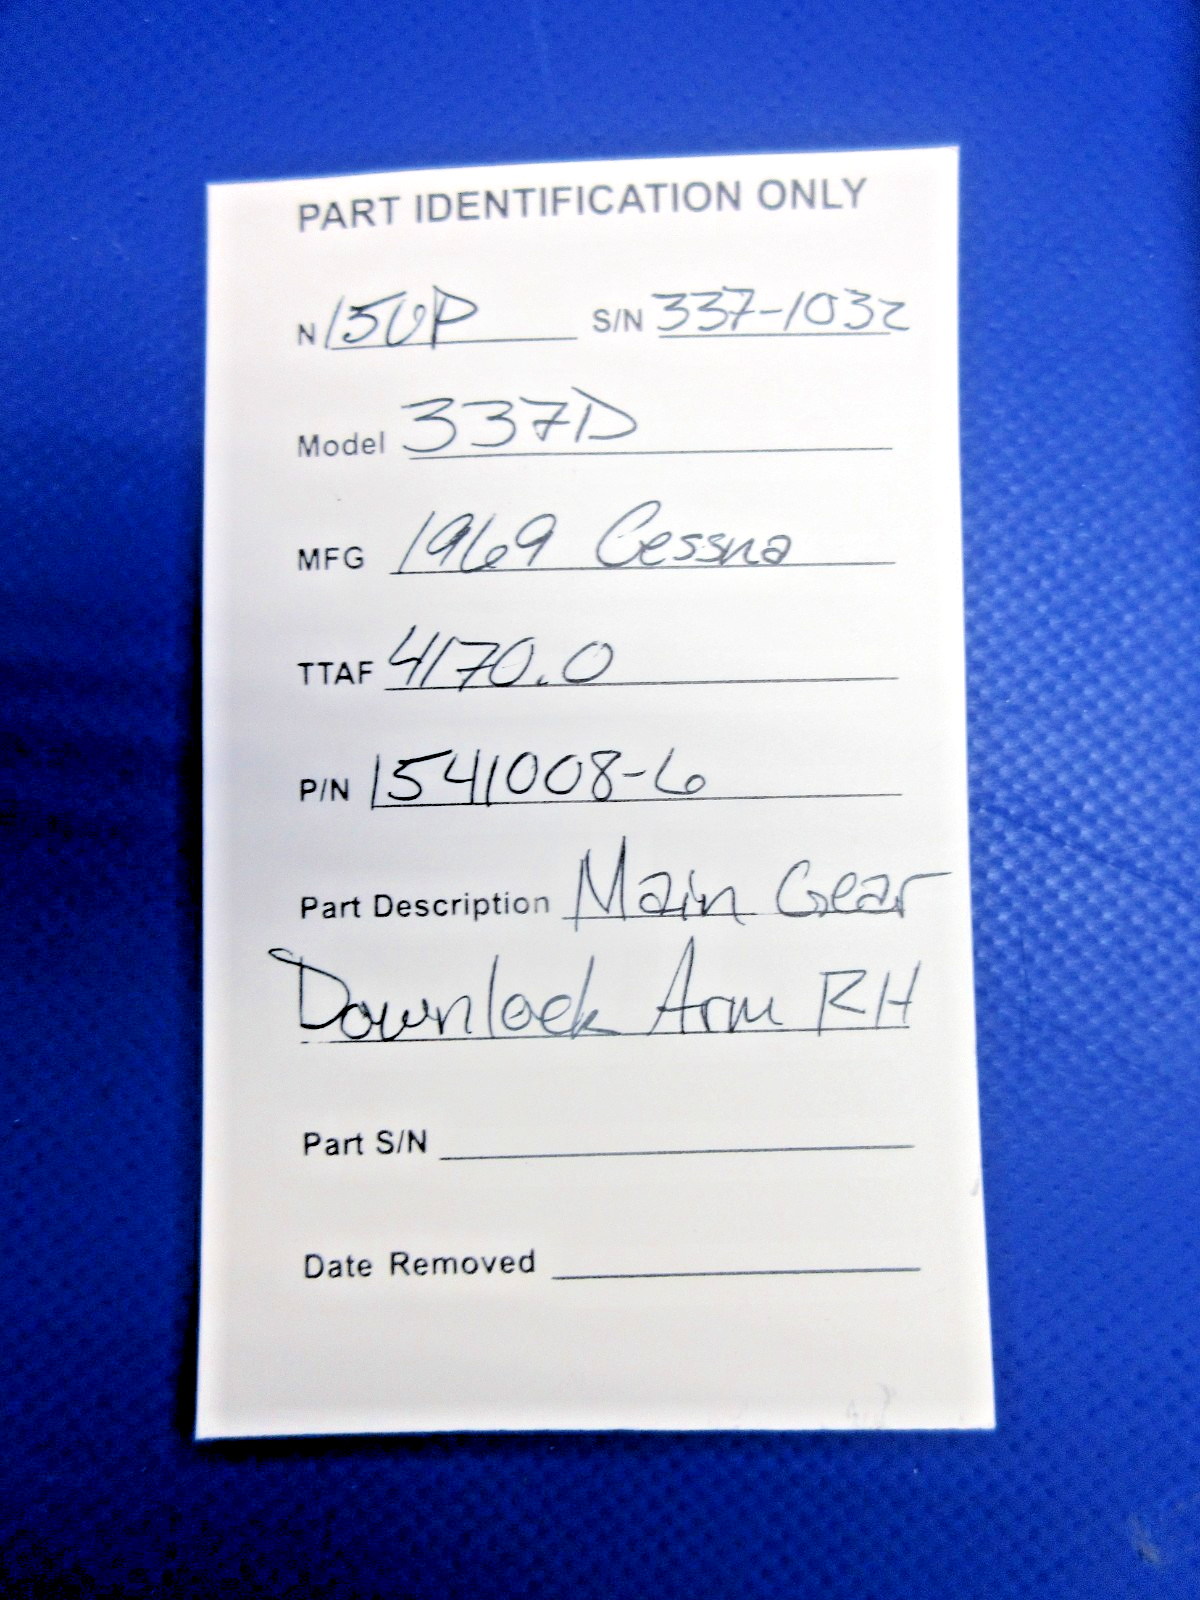 PART IDENTIFICATION ONLY
N 150P S/N 337-1032
Model 337D
MFG 1969 Cessna
TTAF 4170.0
P/N 1541008-6
Part Description Main Gear
Downlock Arm RH
Part S/N
Date Removed